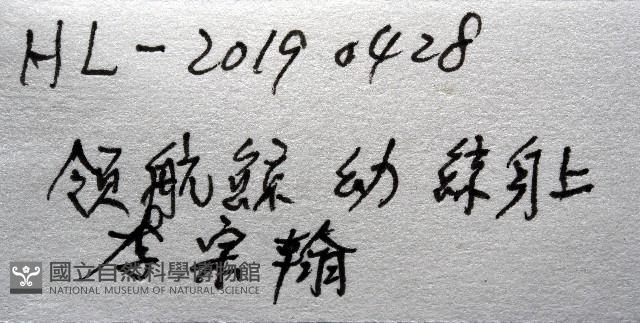 HL-20190428
領航鯨 幼 綠身上
李宗翰
國立自然科學博物館
NATIONAL MUSEUM OF NATURAL SCIENCE